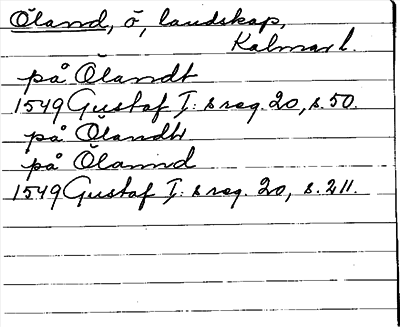 Öland, ö, landskap,
Kalmar l.
på Ölandt
1549 Gustaf I:s reg. 20, s. 50.
på Ölandh
på Ölannd
1549 Gustaf I:s reg. 20, s. 211.